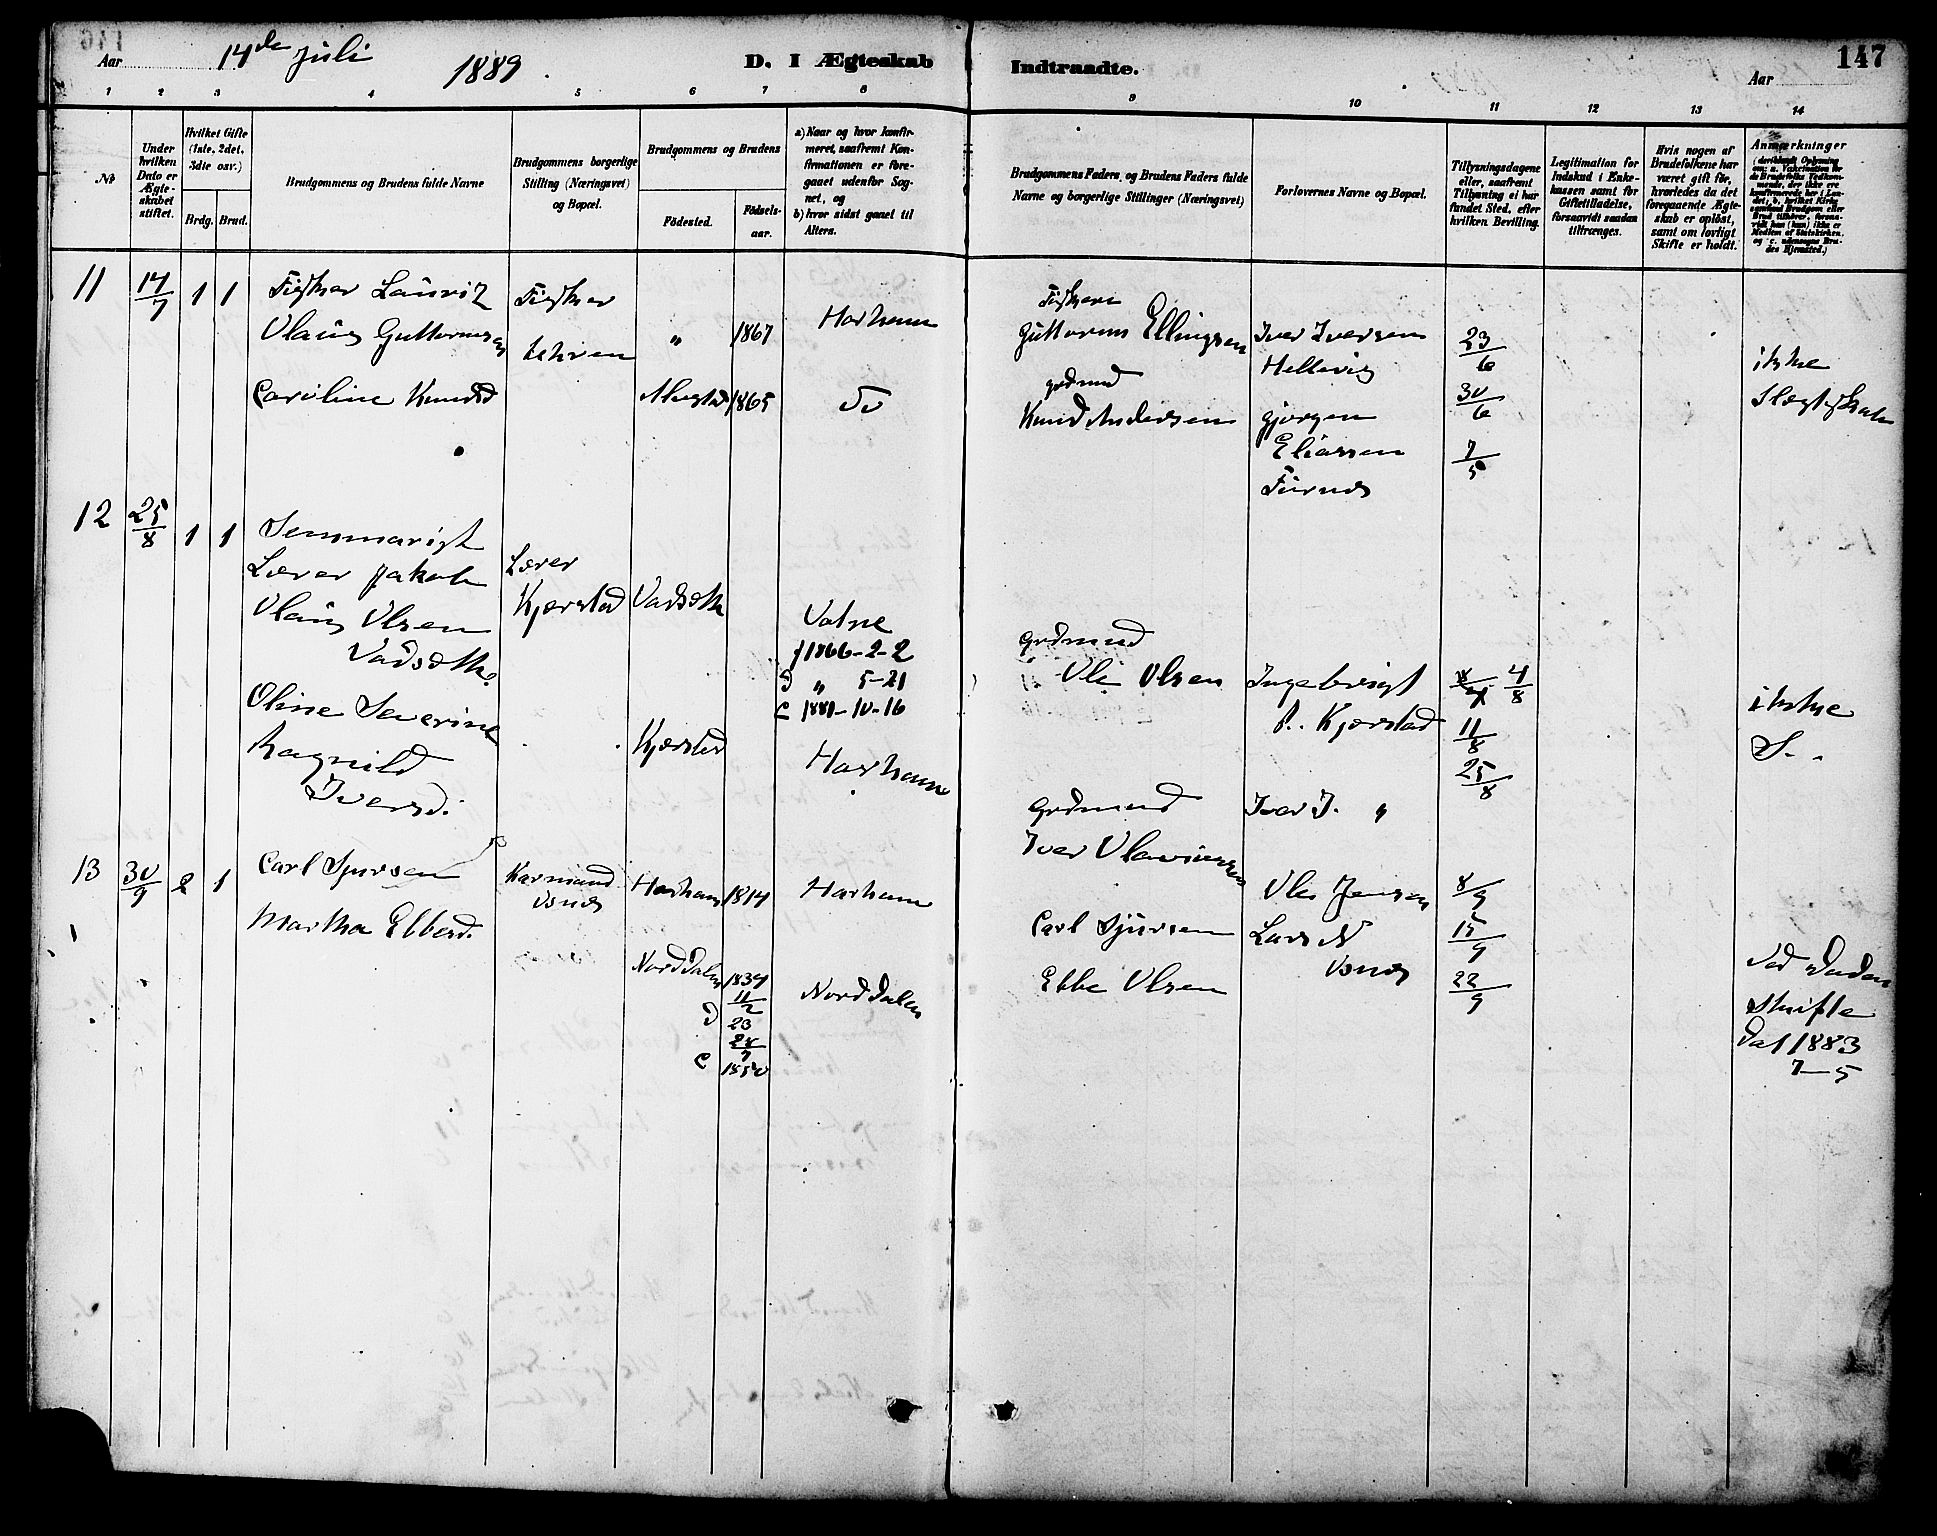 147
Aar 14de Juli 1889.
D. I Ægteskab Indtraadte.
Aar
1 2 3 4 5 6 7 8 9 10 11 12 13 14
No
Under hvilken Dato er Ægteskabet stiftet.
Hvilket Gifte (1ste, 2det, 3die osv.)
Brdg. Brud.
Brudgommens og Brudens fulde Navne
Brudgommens borgerlige Stilling (Næringsvei) og Bopæl.
Brudgommens og Brudens
Födested.
Födselsaar.
a) Naar og hvor konfirmeret, saafremt Konfirmationen er foregaaet udenfor Sognet, og
b) hvor sidst gaaet til Alters.
Brudgommens Faders, og Brudens Faders fulde Navne og borgerlige Stillinger (Næringsvei)
Forlovernes Navne og Bopæl.
Tillysningsdagene eller, saafremt Tillysning ei har fundet Sted, efter hvilken Bevilling.
Legitimation for Indskud i Enkekassen samt for Giftetilladelse, forsaavidt saadan tiltrænges.
Hvis nogen af Brudefolkene har været gift för, hvorledes da det foregaaende Ægteskab er oplöst, samt om lovligt Skifte er holdt.
Anmærkninger
11 14/7 1 1 Fisker Lauriz Fisker
Olaus Guttormsen " 1867 Harham
Caroline Knudsd 1865 Do
Fisker
Guttorm Ellingsen Iver Iversen 23/6
Hellevig ikke
grdmd 30/6
Knud Andersen Gjørgen Slægtskab
Eliassen 7/5
12 25/8 1 1
Lærer Jakob Lærer
Olaus Olsen Kjærstad Vadsæth Vatne
Vadsæth. f 1866-2-2
D " 5-21
C 1881-10-16
Oline Severine Kjærstad
Ragnild Harham
Iversd.
grdmnd
Ole Olsen Ingebrigt 4/8
P. Kjærstad 11/8 ikke
25/8 S.
grdmnd Iver I. "
Iver
13 30/9 2 1 Carl Sjursen Harham 1814 Harham
Martha Ebbesd.
Norddalen 1834 Norddalen
11/2
D 23
C 1850
Ole Jensen 8/9
Carl Sjursen Lars N 15/9
Ebbe Olsen 22/9
Skifte
Dat 1883
7-5